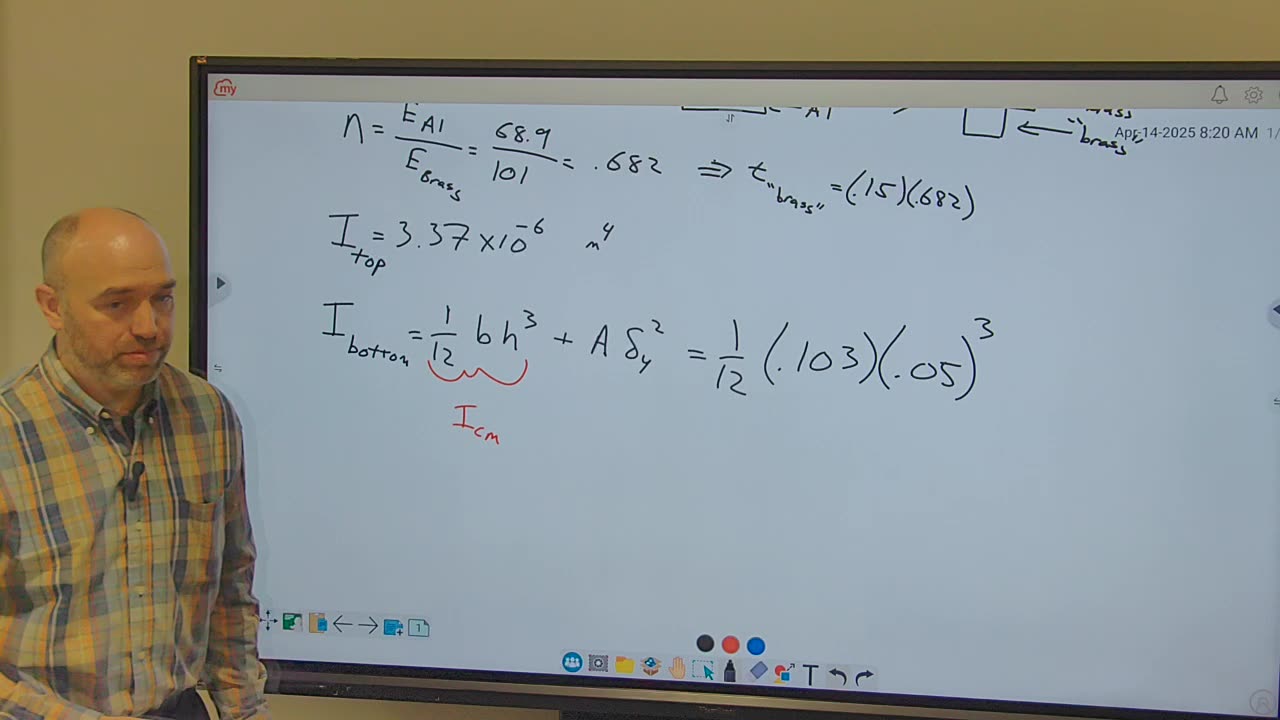 my
Apr-14-2025 8:20 AM 1/
Al
"brass"
n = E_Al / E_Brass = 68.9 / 101 = .682 ⇒ t_"brass" = (.15)(.682)
I_top = 3.37 × 10^-6 m^4
I_bottom = 1/12 b h^3 + A δ_y^2 = 1/12 (.103)(.05)^3
I_cm
1
T